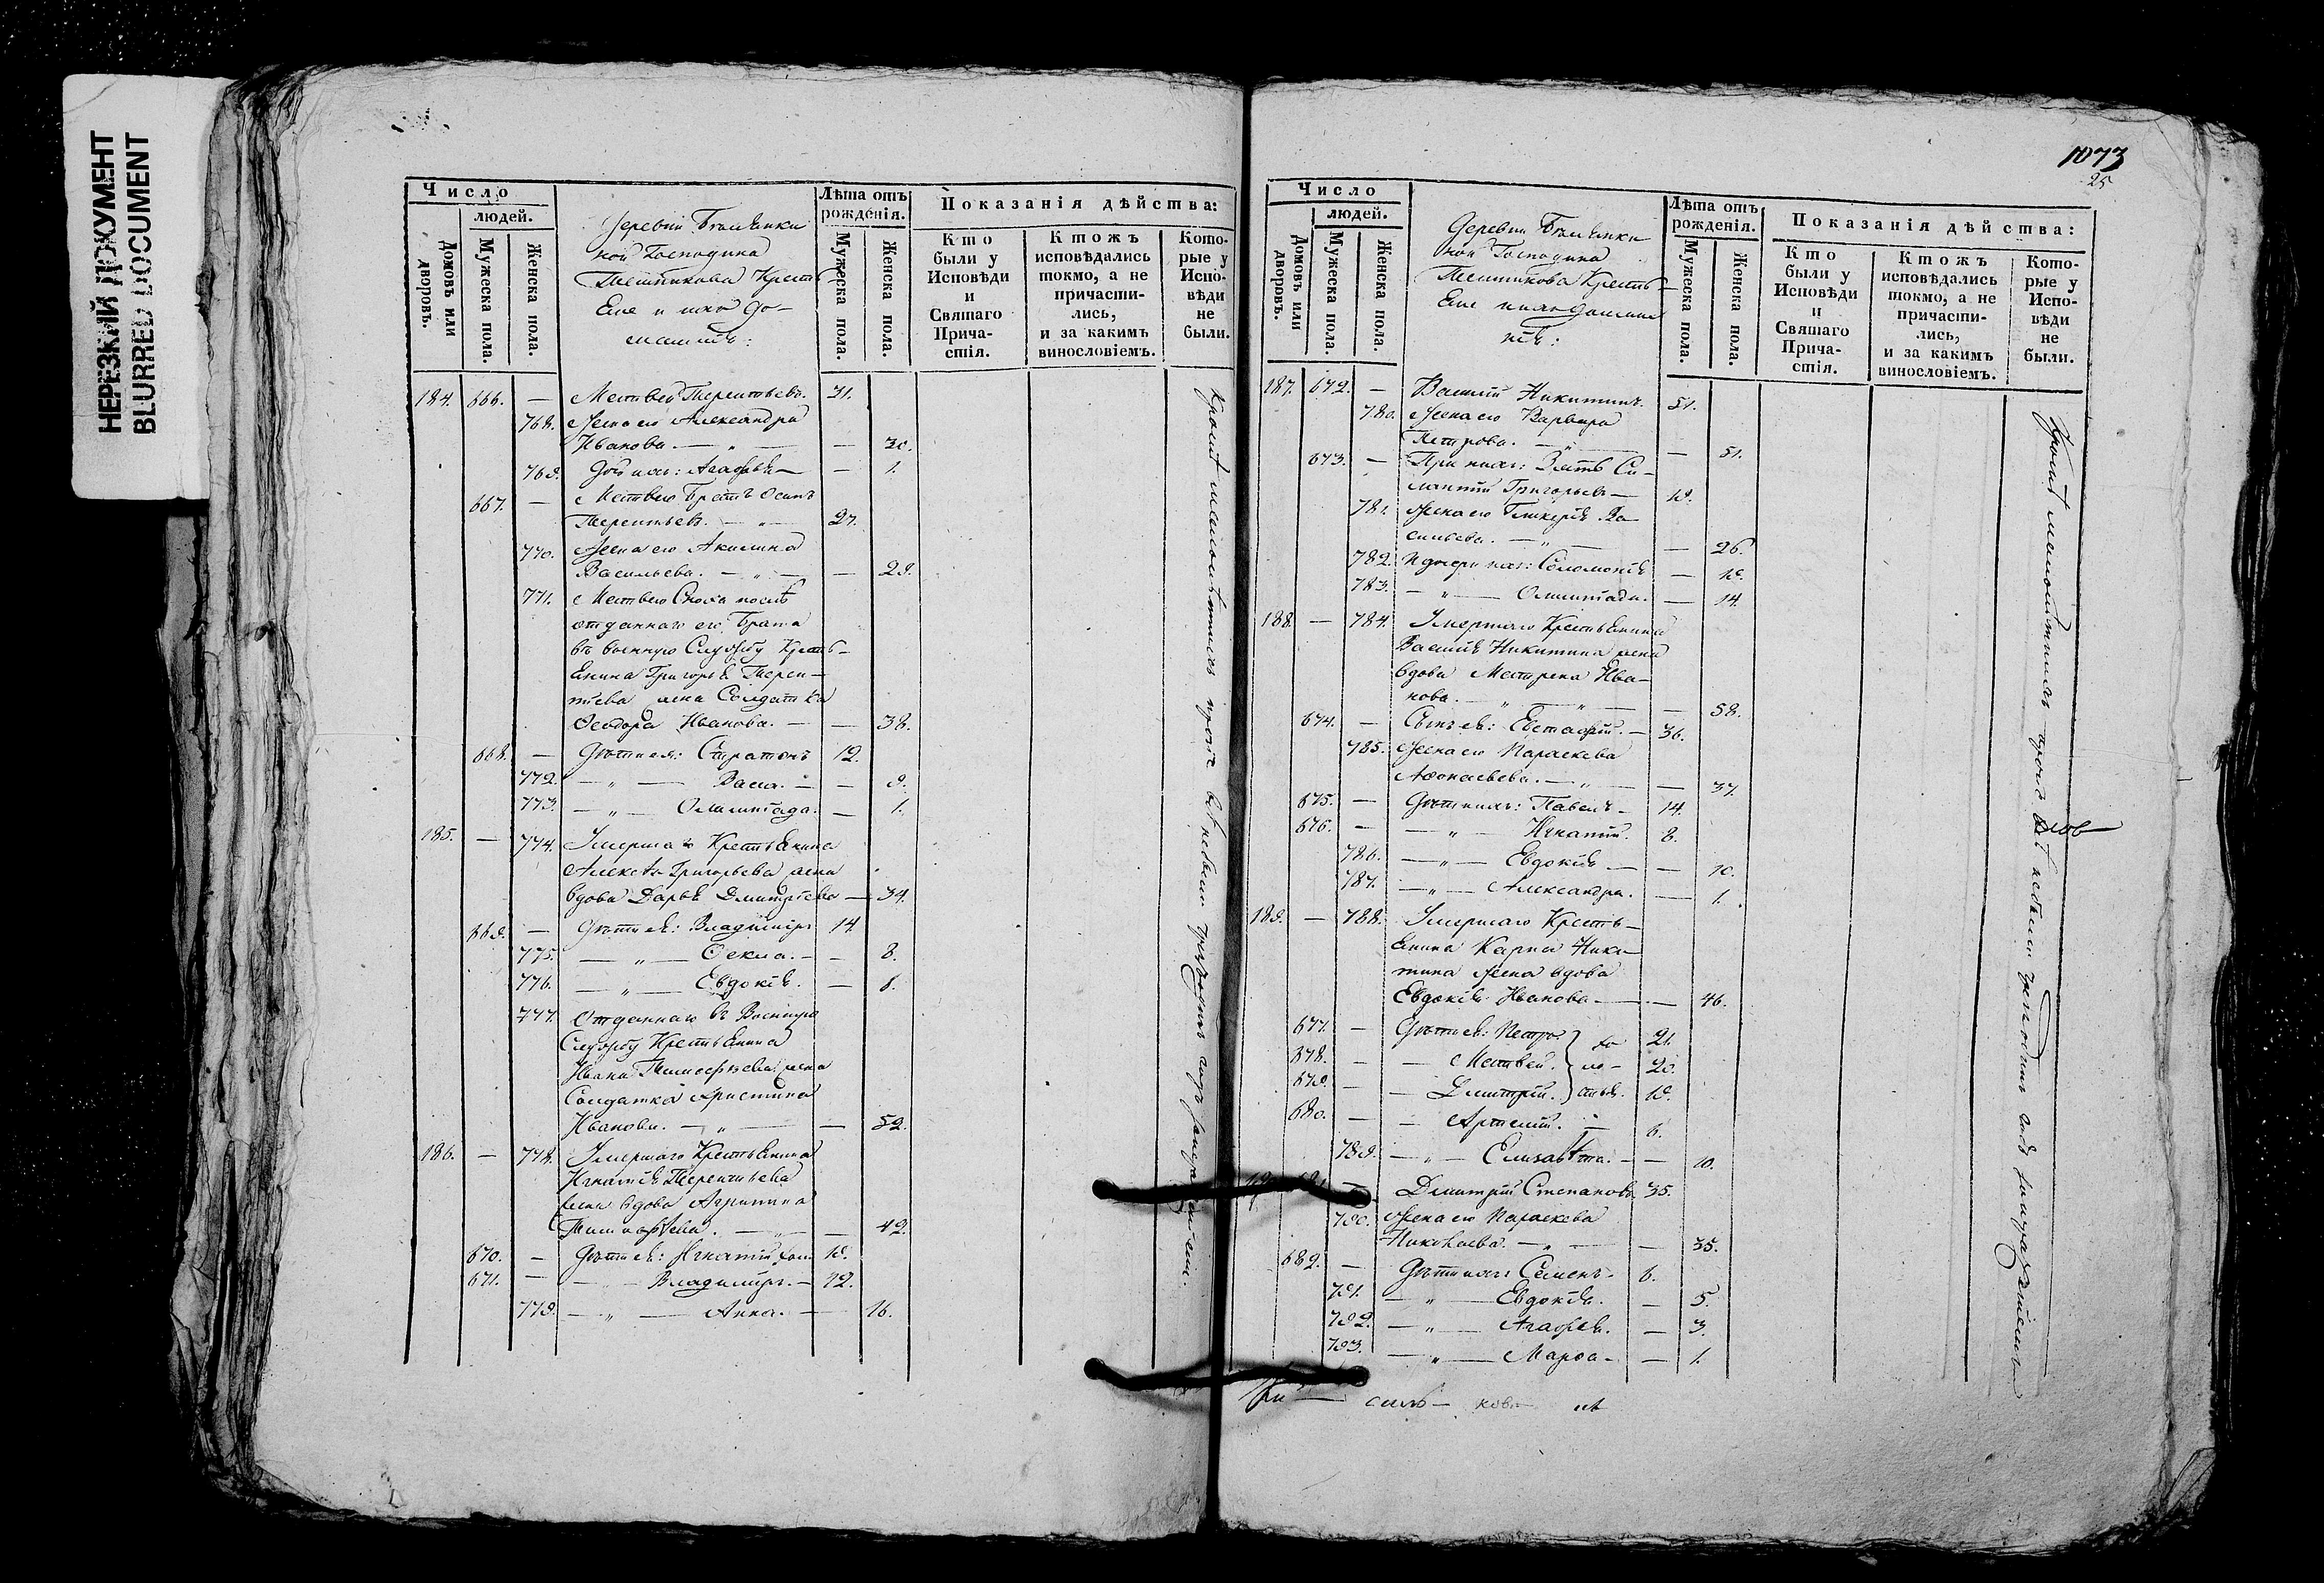 НЕРЕЗКИЙ ДОКУМЕНТ
BLURRED DOCUMENT
Число
людей.
Домовъ или дворовъ.
Мужеска пола.
Женска пола.
Деревни
ной Господина
Крестья
Ене и ихъ до-
машніѣ:
Лѣта отъ рожденія.
Мужеска пола.
Женска пола.
Показанія дѣйства:
Кто были у Исповѣди и Святаго Причастія.
Ктожъ исповѣдались токмо, а не причастились, и за какимъ винословіемъ.
Которые у Исповѣди не были.
184. 666. — Матвей Терентьевъ. 31.
768. Жена его Александра
Иванова. — „ — — 30.
769. Дочь ихъ: Агафья — — 1.
667. — Матвею Братъ Осипъ
Терентьевъ. — „ — 27.
770. Жена его Акилина
Васильева. — „ — — 29.
771. Матвею Сноха послѣ
отданнаго его Брата
въ военную Службу Кресть-
янина Григорья Терен-
тьева жена Солдатка
Ѳеодора Иванова. — — 38.
668. — Дѣти ея: Стратонъ 12.
772. — „ — Васса. — — 9.
773. — „ — Олимпіада. — 1.
185. — 774. Умершаго Крестьянина
Алексѣя Григорьева жена
вдова Дарья Дмитріева — 34.
669. — Дѣти ея: Владиміръ 14
775. — „ — Ѳекла. — — 8.
776. — „ — Евдокія. — 1.
777. Отданнаго въ Военную
Службу Крестьянина
Ивана Тимоѳѣева жена
Солдатка Христина
Иванова. — „ — — 52.
186. — 778. Умершаго Крестьянина
Игнатія Терентьева
жена вдова Агрипина
Тимоѳѣева. — „ — — 42.
670. — Дѣти ея: Игнатій 19.
671. — — „ — Владиміръ. — 12.
779. — „ — Анна. — 16.
1073
25
Число
людей.
Домовъ или дворовъ.
Мужеска пола.
Женска пола.
Деревни
ной Господина
Крестья
Ене и ихъ домаш
ніѣ:
Лѣта отъ рожденія.
Мужеска пола.
Женска пола.
Показанія дѣйства:
Кто были у Исповѣди и Святаго Причастія.
Ктожъ исповѣдались токмо, а не причастились, и за какимъ винословіемъ.
Которые у Исповѣди не были.
187. 672. — Василій Никитинъ. 51.
780. Жена его Варвара
Петрова. — „ — — 51.
673. — При нихъ: Зять Си-
лантій Григорьевъ — 19.
781. Жена его Гликерія Ва-
сильева. — „ — — 26.
782. И дочери ихъ: Соломонія — 19.
783. — „ — Олимпіада. — 14.
188. — 784. Умершаго Крестьянина
Василія Никитина жена
вдова Матрена Ива-
нова. — „ — „ — — 58.
674. — Сынъ ея: Евстафій. — 36.
785. Жена его Параскева
Аѳонасьева. — „ — — 37.
675. — Дѣти ихъ: Павелъ — 14.
676. — — „ — Игнатій. 8.
786. — „ — Евдокія — — 10.
787. — „ — Александра. — 1.
189. — 788. Умершаго Кресть-
янина Карпа Ники-
тина Жена вдова
Евдокія Иванова — — 46.
677. — Дѣти ея: Петръ хо 21.
678. — — Матвей. ло- 20.
679. — — Дмитрій. стыя. 19.
680. — — Артемій. — 6.
789. — „ — Елизавѣта. — — 10.
— Дмитрій Степановъ 35.
790. Жена его Параскева
Николаева. — „ — — 35.
682. — Дѣти ихъ: Семенъ — 6.
791. — „ — Евдокія. — 5.
792. — „ — Агафья. — 3.
793. — „ — Марѳа — — 1.